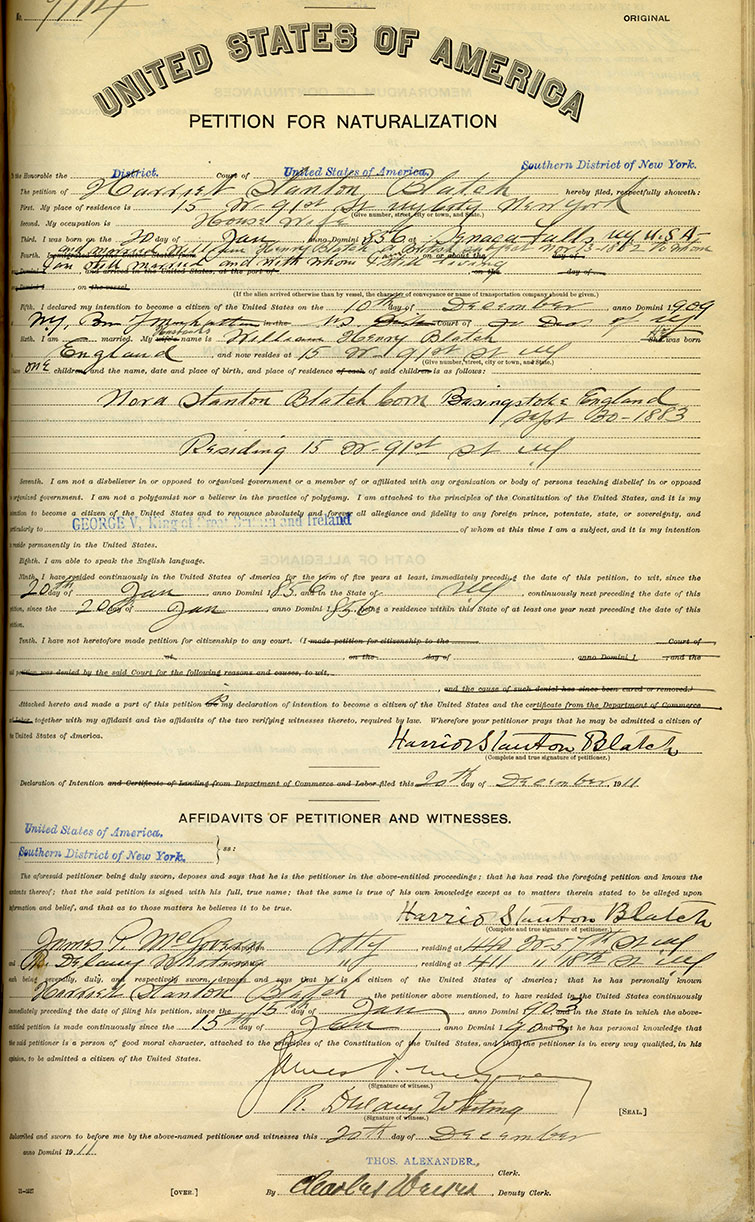 No. 9114
ORIGINAL
UNITED STATES OF AMERICA
PETITION FOR NATURALIZATION
the Honorable the District. Court of United States of America, Southern District of New York.
The petition of Harriet Stanton Blatch hereby filed, respectfully showeth:
First. My place of residence is 15 W-91st St NY City New York
(Give number, street, city or town, and State.)
Second. My occupation is House Wife
Third. I was born on the 20 day of Jan anno Domini 1856 at Seneca Falls NY U.S.A-
Fourth. and married William Henry Blatch a British subject Nov 13-1882 to whom
I am still married and with whom I still living
on the day of
, on the vessel
(If the alien arrived otherwise than by vessel, the character of conveyance or name of transportation company should be given.)
Fifth. I declared my intention to become a citizen of the United States on the 10th day of December anno Domini 1909
in the Court of
Sixth. I am married. My wife's husband's name is William Henry Blatch She He was born
England, and now resides at 15 W-91st St NY
(Give number, street, city or town, and State.)
one children, and the name, date and place of birth, and place of residence of each of said children is as follows:
Nora Stanton Blatch born Basingstoke England
Sept 30-1883
Residing 15 W-91st St NY
Seventh. I am not a disbeliever in or opposed to organized government or a member of or affiliated with any organization or body of persons teaching disbelief in or opposed
organized government. I am not a polygamist nor a believer in the practice of polygamy. I am attached to the principles of the Constitution of the United States, and it is my
intention to become a citizen of the United States and to renounce absolutely and forever all allegiance and fidelity to any foreign prince, potentate, state, or sovereignty, and
particularly to GEORGE V, King of Great Britain and Ireland of whom at this time I am a subject, and it is my intention
reside permanently in the United States.
OATH OF ALLEGIANCE
Eighth. I am able to speak the English language.
Ninth. I have resided continuously in the United States of America for the term of five years at least, immediately preceding the date of this petition, to wit, since the
20th day of Jan anno Domini 1856, and in the State of NY, continuously next preceding the date of this
petition, since the 20th day of Jan anno Domini 1856, being a residence within this State of at least one year next preceding the date of this
petition.
Tenth. I have not heretofore made petition for citizenship to any court. (I made petition for citizenship to the Court of
at, on the day of, anno Domini 1, and the
said petition was denied by the said Court for the following reasons and causes, to wit,
, and the cause of such denial has since been cured or removed.)
Attached hereto and made a part of this petition are is my declaration of intention to become a citizen of the United States and the certificate from the Department of Commerce
and Labor, together with my affidavit and the affidavits of the two verifying witnesses thereto, required by law. Wherefore your petitioner prays that he may be admitted a citizen of
the United States of America.
Harriot Stanton Blatch
(Complete and true signature of petitioner.)
Declaration of Intention and Certificate of Landing from Department of Commerce and Labor filed this 20th day of December, 1911
AFFIDAVITS OF PETITIONER AND WITNESSES.
United States of America,
Southern District of New York. ss:
The aforesaid petitioner being duly sworn, deposes and says that he is the petitioner in the above-entitled proceedings; that he has read the foregoing petition and knows the
contents thereof; that the said petition is signed with his full, true name; that the same is true of his own knowledge except as to matters therein stated to be alleged upon
information and belief, and that as to those matters he believes it to be true.
Harriot Stanton Blatch
(Complete and true signature of petitioner.)
James P. McGovern Atty residing at 440 W-57th St NY
and R. Delancy Whiting " residing at 411 " 18th St NY
each being severally, duly, and respectively sworn, deposes and says that he is a citizen of the United States of America; that he has personally known
Harriet Stanton Blatch, the petitioner above mentioned, to have resided in the United States continuously
immediately preceding the date of filing his petition, since the 15th day of Jan anno Domini 1903, and in the State in which the above-
entitled petition is made continuously since the 15th day of Jan anno Domini 1903, and that he has personal knowledge that
the said petitioner is a person of good moral character, attached to the principles of the Constitution of the United States, and that the petitioner is in every way qualified, in his
opinion, to be admitted a citizen of the United States.
James P. McGovern
(Signature of witness.)
R. Delancy Whiting [SEAL.]
(Signature of witness.)
Subscribed and sworn to before me by the above-named petitioner and witnesses this 20th day of December
anno Domini 1911.
THOS. ALEXANDER., Clerk.
[OVER.] By Charles Weiser, Deputy Clerk.